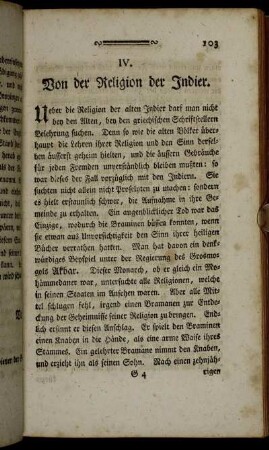 103
IV.
Von der Religion der Indier.
Ueber die Religion der alten Indier darf man nicht
bey den Alten, bey den griechischen Schriftstellern
Belehrung suchen. Denn so wie die alten Völker über-
haupt die Lehren ihrer Religion und den Sinn dersel-
ben äusserst geheim hielten, und die äussern Gebräuche
für jeden Fremden unverständlich bleiben mußten: so
war dieses der Fall vorzüglich mit den Indiern. Sie
suchten nicht allein nicht Proselyten zu machen: sondern
es hielt erstaunlich schwer, die Aufnahme in ihre Ge-
meinde zu erhalten. Ein augenblicklicher Tod war das
Einzige, wodurch die Braminen büßen konnten, wenn
sie etwan aus Unvorsichtigkeit den Sinn ihrer heiligen
Bücher verrathen hatten. Man hat davon ein denk-
würdiges Beyspiel unter der Regierung des Grosmo-
gols Akbar. Dieser Monarch, ob er gleich ein Mo-
hämmedaner war, untersuchte alle Religionen, welche
in seinen Staaten im Ansehen waren. Aber alle Mit-
tel schlugen fehl, irgend einen Bramanen zur Entde-
ckung der Geheimnisse seiner Religion zu bringen. End-
lich ersinnt er diesen Anschlag. Er spielt den Braminen
einen Knaben in die Hände, als eine arme Waise ihres
Stammes. Ein gelehrter Bramine nimmt den Knaben,
und erzieht ihn als seinen Sohn. Nach einen zehnjäh-
G 4 rigen